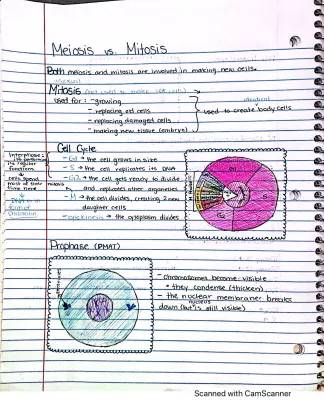 Meiosis vs. Mitosis
Both meiosis and mitosis are involved in making new cells.
asexual
Mitosis (not used to make sex cells)
used for: - growing
- replacing old cells
- replacing damaged cells
- making new tissue (embryo)
identical
used to create body cells
Cell Cycle
Interphase:
functions
cells spend
most of their
time here
- G1 → the cell grows in size
- S → the cell replicates its DNA
- G2 → the cell gets ready to divide
and replicates other organelles
mitosis
- M → the cell divides, creating 2 new
daughter cells
- cytokinesis → the cytoplasm divides
DNA is in
form of
chromatin
G1
S
G2
Prophase (PMAT)
- chromosomes become visible
• they condense (thicken)
- the nuclear membrane breaks
nucleus
down (but is still visible)
Scanned with CamScanner